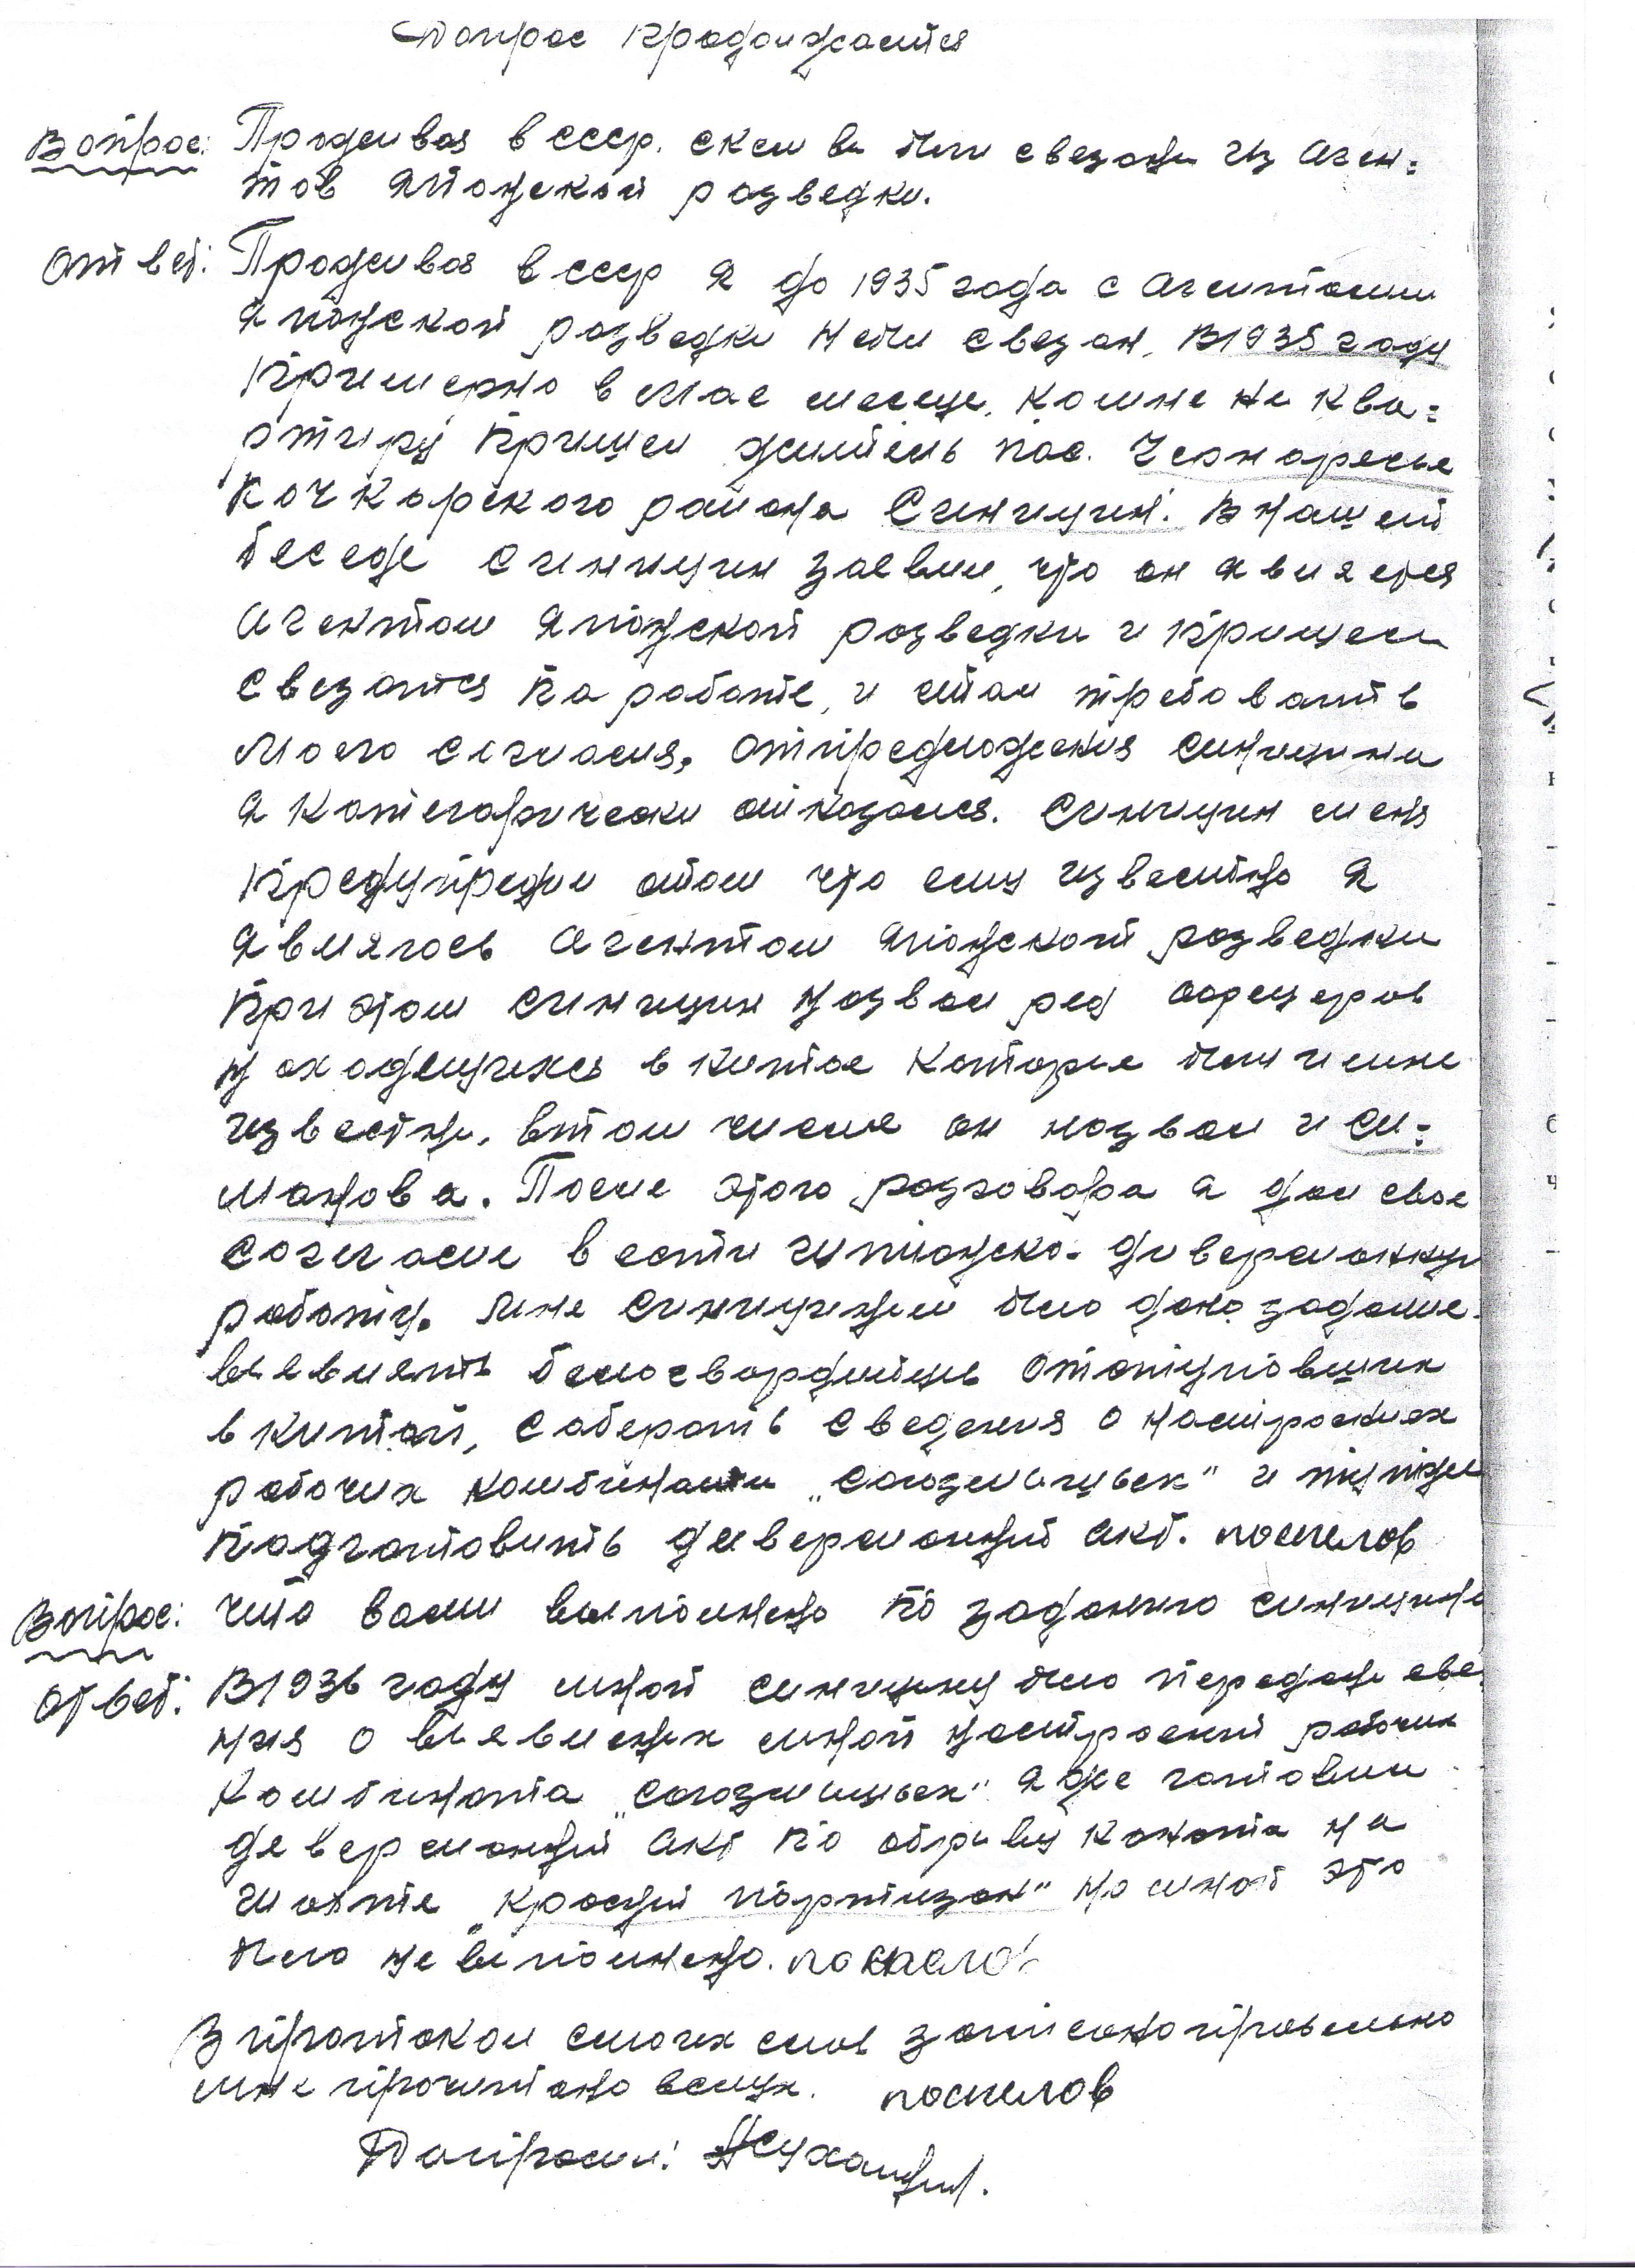 Допрос продолжается
Вопрос: Проживая в СССР. с кем вы были свезаны из Аген=
тов Японской разведки.
Ответ: Проживая в СССР я до 1935 года с Агентами
Японской разведки небыл свезан, В 1935 году
примерно в мае месеце, комне на ква=
ртиру пришел житель пос. Черноречье
Кочкарского района Синицин. В нашей
беседе Синицин заевил, что он является
Агентом Японской разведки и пришел
свезатся по работе, и стал требовать
моего сагласия, от предложения Синицина
я категорически отказался. Синицин меня
предупредил отом что ему известно я
являюсь Агентом Японской разведки
при этом Синицин назвал ред офицеров
находещихся в Китае которые были и мне
известны, втом числе он назвал и Си=
манова. После этого разговора я дал свое
согласие вести шпионско-диверсионную
работу. Мне Синициным было дано задание
выевлять белогвардейцев отступивших
в Китай, соберать сведения о настроениях
рабочих комбината „Союзмышьяк" и
подготовить диверсионный акт. поспелов
Вопрос: что вами выполнено по заданию Синицина
Ответ: В 1936 году мной Синицину было передано све
ния о выевленых мной настроений рабочих
Комбината „Союзмышьяк" я же готовил
деверсионный Акт по обрыву каната на
шахте „Красный партизан" но мной это
было не выполнено. поспелов
В протокол с моих слов записано правельно
мне прочитано вслух. поспелов
Допросил: